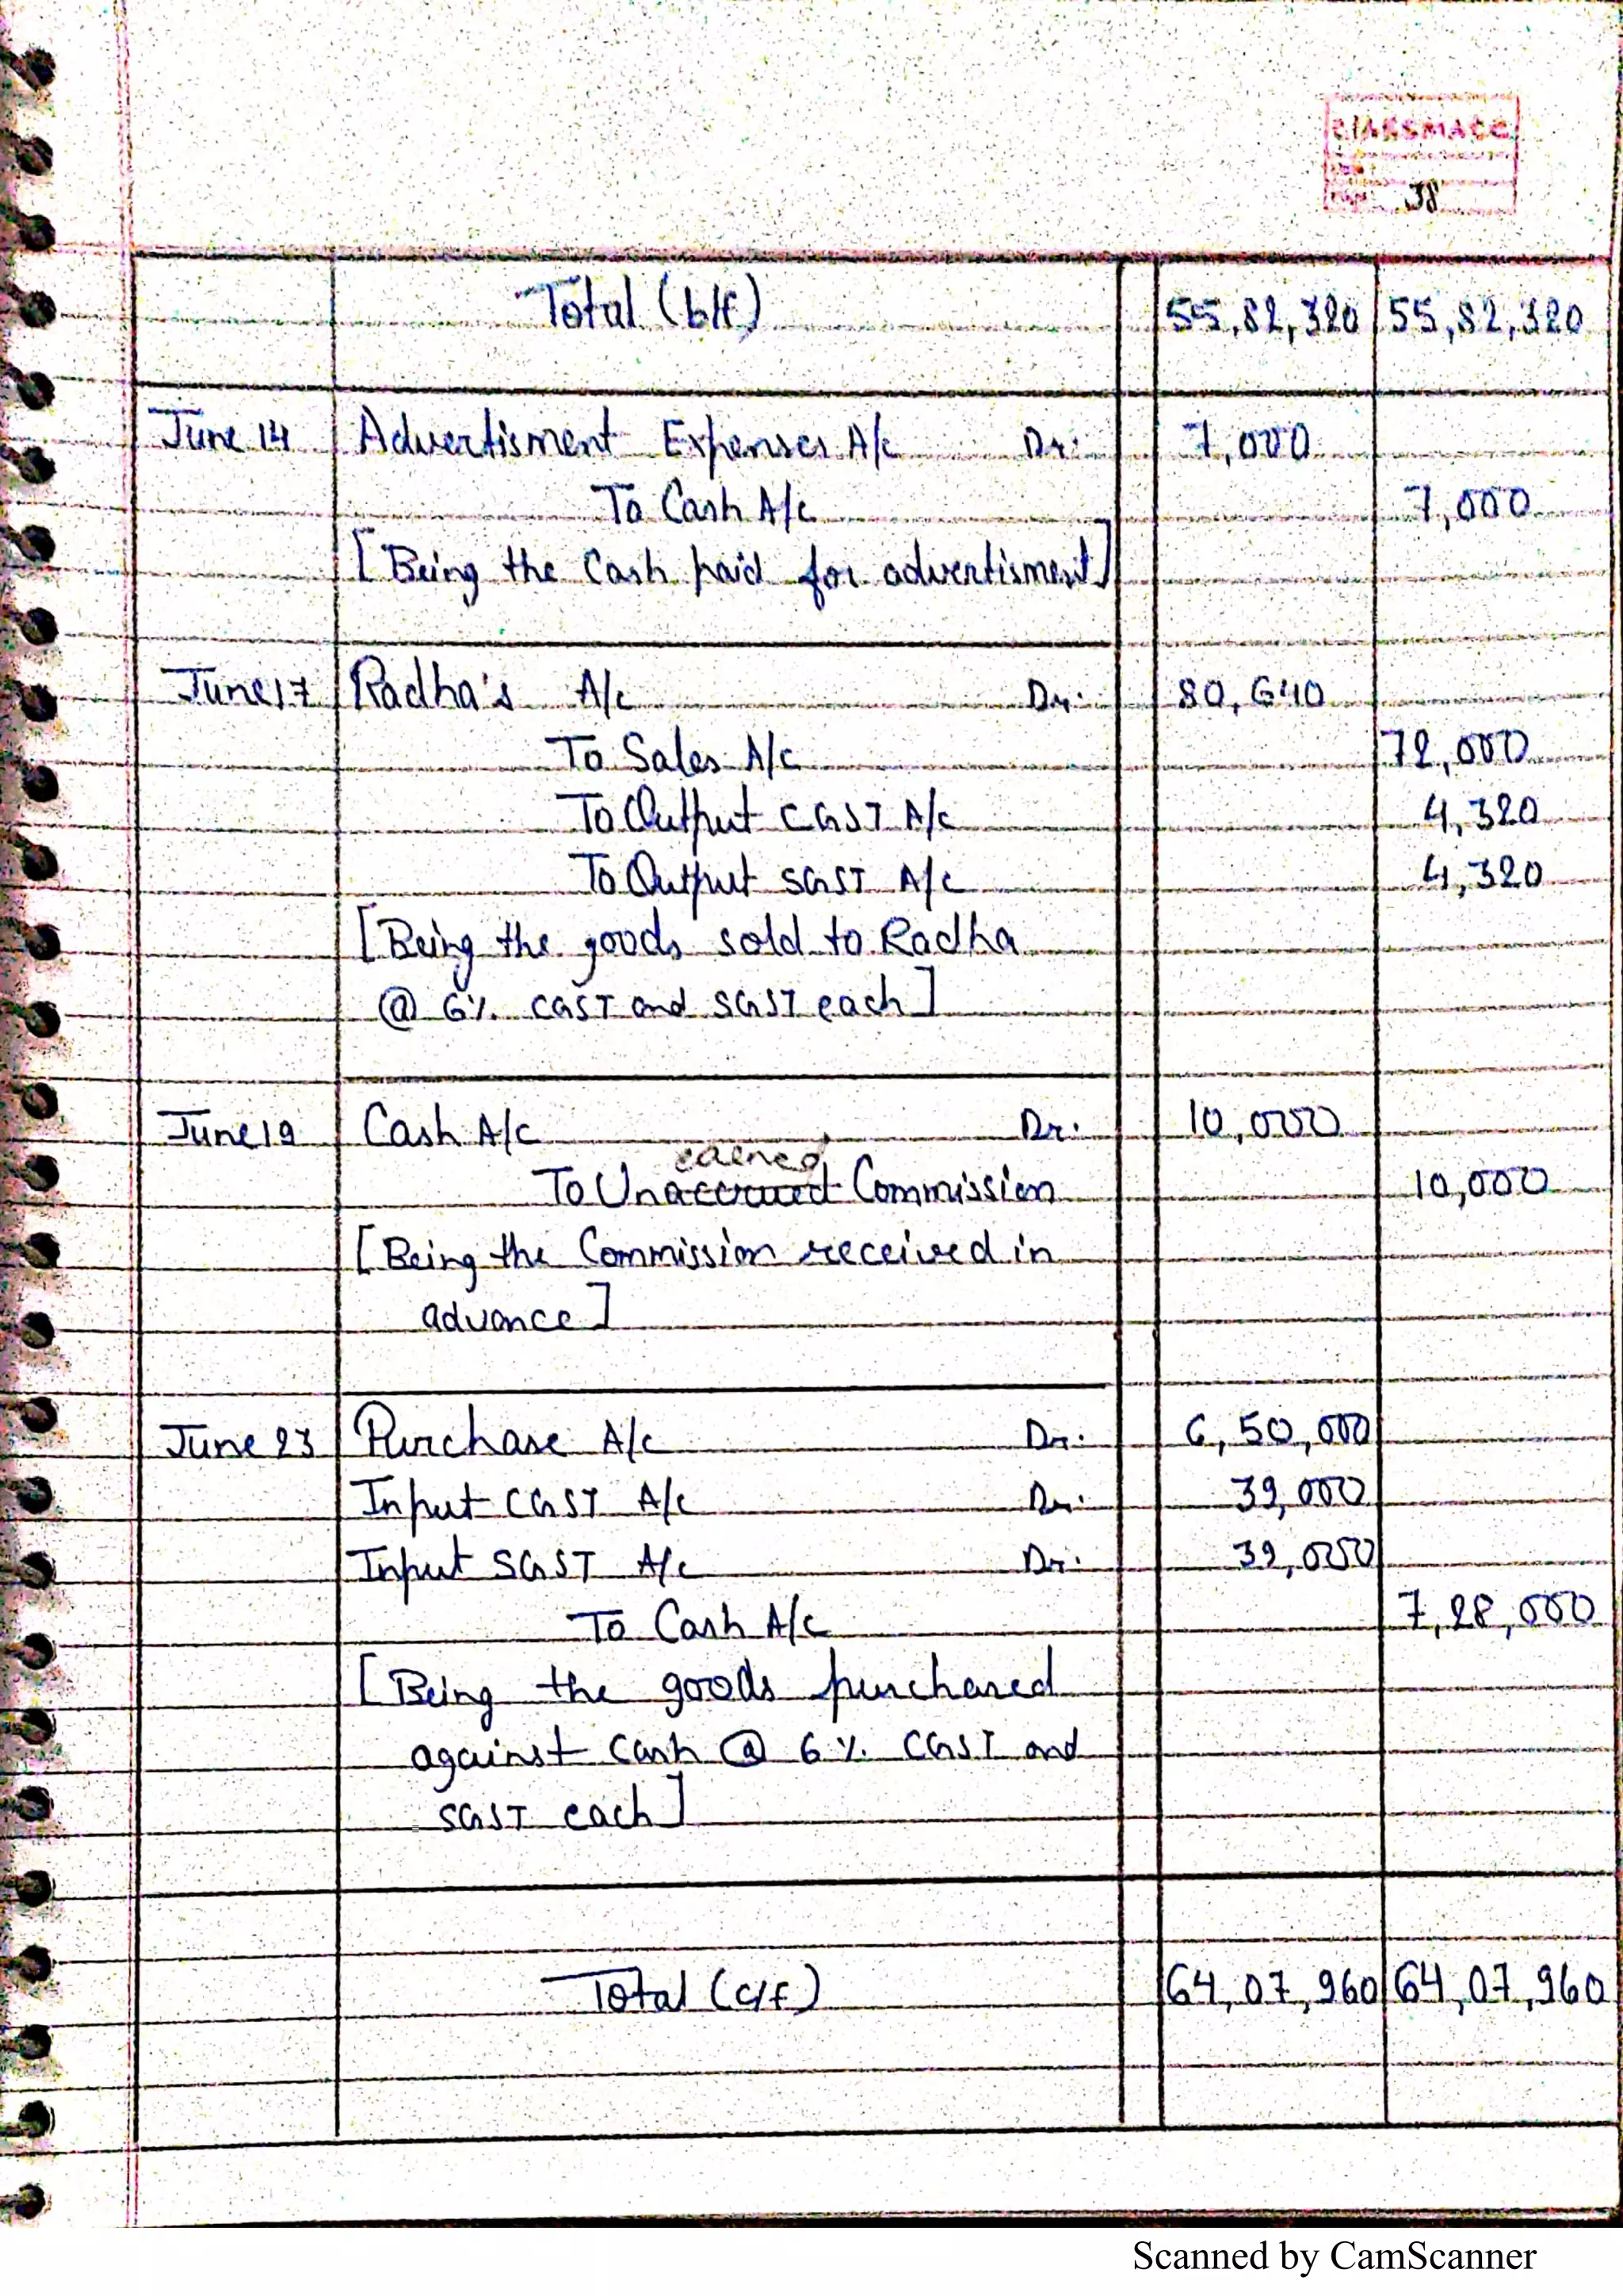 Total (b/f) 55,82,320 55,82,320
June 14 Advertisment Expenses A/c Dr. 7,000
To Cash A/c 7,000
[Being the Cash paid for advertisment]
June 17 Radha's A/c Dr. 80,640
To Sales A/c 72,000
To Output CGST A/c 4,320
To Output SGST A/c 4,320
[Being the goods sold to Radha
@ 6% CGST and SGST each]
June 19 Cash A/c Dr. 10,000
earned
To Unaccrued Commission 10,000
[Being the Commission received in
advance]
June 23 Purchase A/c Dr. 6,50,000
Input CGST A/c Dr. 39,000
Input SGST A/c Dr. 39,000
To Cash A/c 7,28,000
[Being the goods purchased
against Cash @ 6% CGST and
SGST each]
Total (c/f) 64,07,960 64,07,960
Scanned by CamScanner